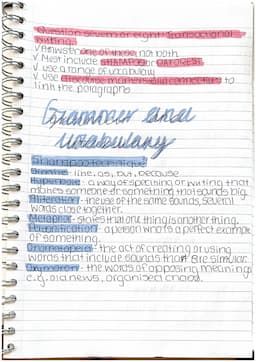 Question seven or eight: transactional
writing.
✓ Answer one of those, not both.
✓ Must include or
✓ use a range of vocabulary
✓ use discourse markers and connectors to
link the paragraphs
Grammar and
Vocabulary
Simile - like, as, but, because
Hyperbole - a way of speaking or writing that
makes someone or something that sounds big.
Alliteration - the use of the same sounds, several
words close together.
Metaphor - states that one thing is another thing.
Personification - a person who is a perfect example
of something.
Onomatopoeia - the act of creating or using
words that include sounds that are similar.
Oxymoron - the words of opposing meaning
e.g. old news, organised chaos.